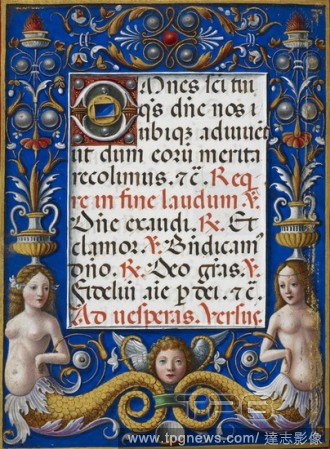 Omnes sc̄i tui
q̄s dn̄e nos i
ubiqz adiuuēt
ut dum eorū merita
recolimus. ⁊c̄. Req̄
re in fine laudum ℣.
Dn̄e exaudi. ℟. Et
clamor. ℣. Bn̄dicam̄
dn̄o. ℟. Deo gr̄as. ℣.
Fideliū aīe p̲ dei. ⁊c̄.
Ad uesperas. Versuc.
TPG
www.tpgnews.com/ 達志影像